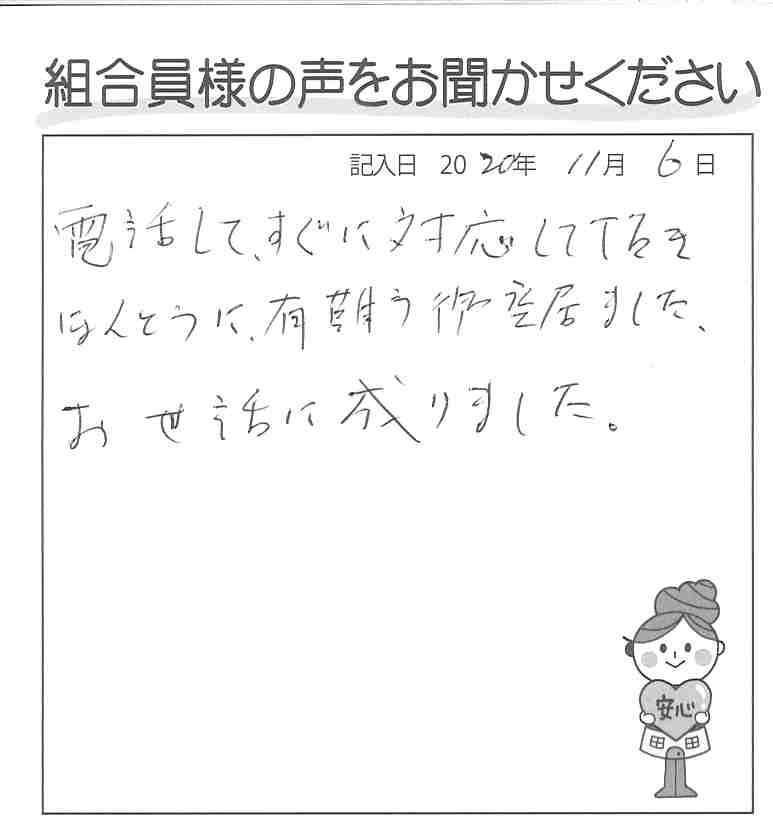 組合員様の声をお聞かせください
記入日 2020年 11月 6日
電話して、すぐに対応して頂き
ほんとうに、有難う御座居ました、
お世話に成りました。
安心